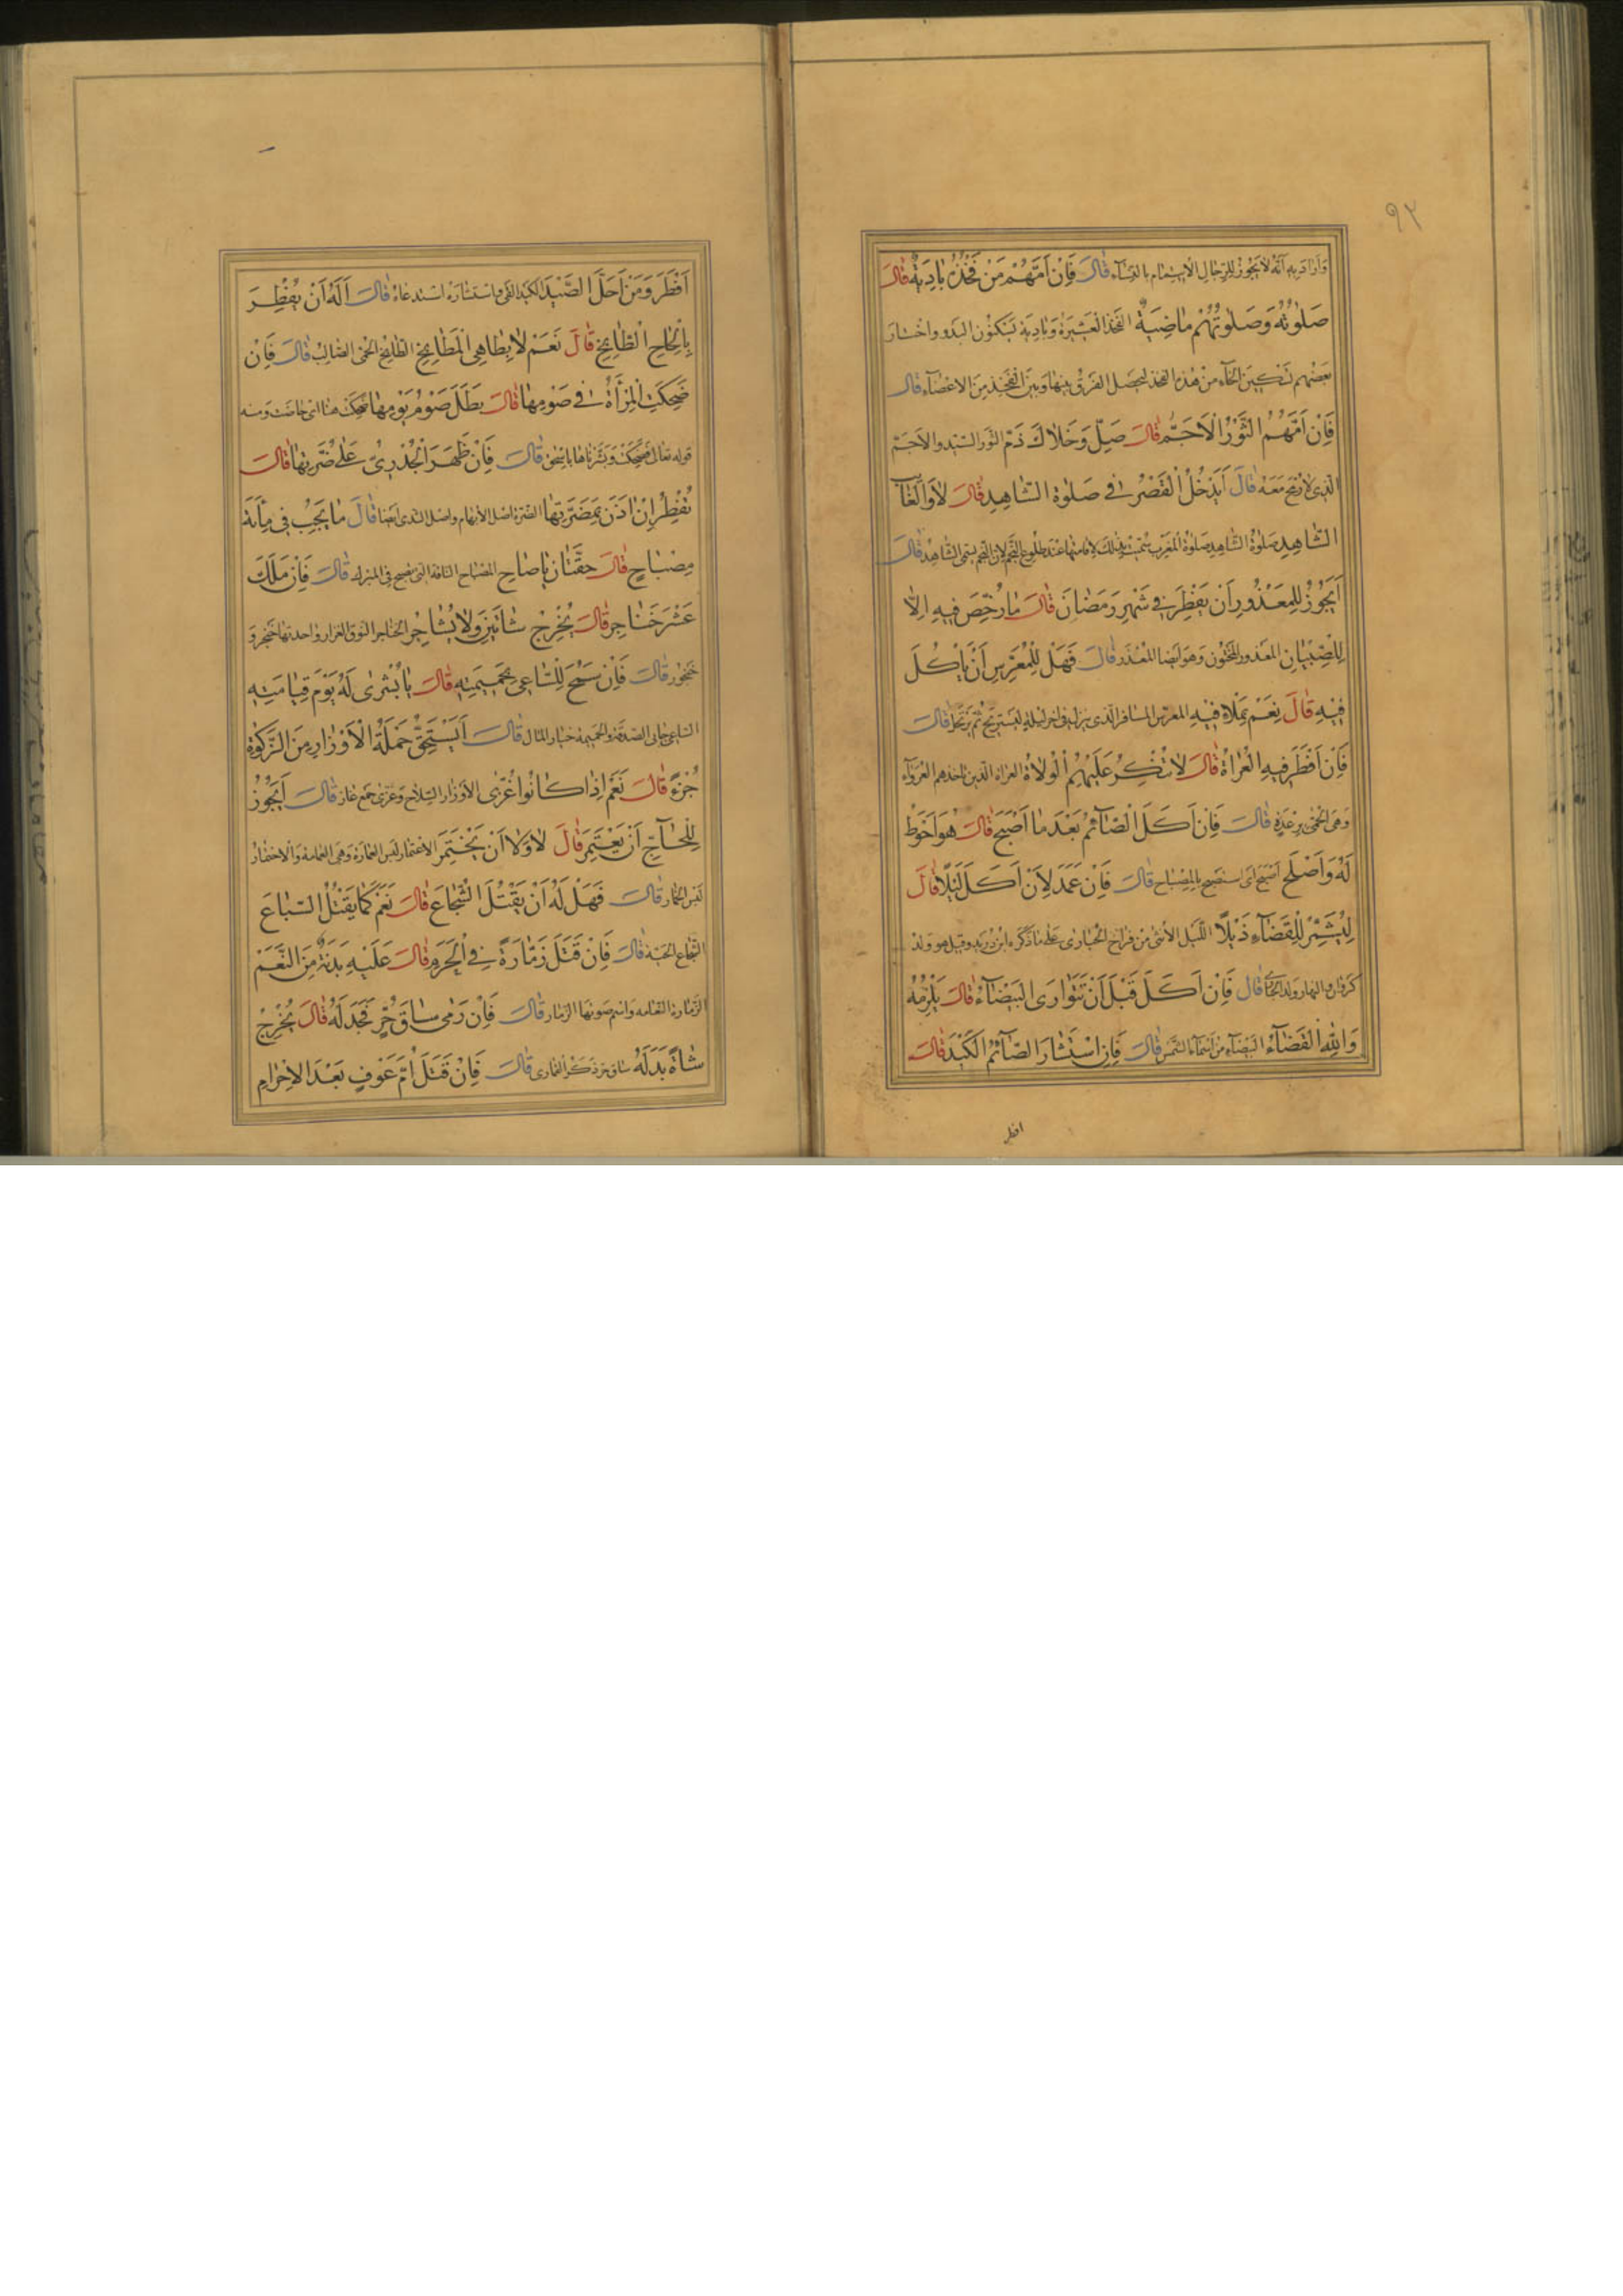 ٩٢
وَاَرٰادَ بِهِ اَنَّهُ لاٰ يَجُوزُ لِلرِّجٰالِ الْاِيتِمٰامُ بِالنِّسٰآءِ قٰالَ فَاِنْ اَمَّهُمْ مَنْ فَخْذُهُ بٰادِيَةٌ قٰالَ
صَلٰوتُهُ وَصَلٰوتُهُمْ مٰاضِيَةٌ الفخذ الْعَشيرَة وَبٰادِيَة يَسْكنُون البَدو واخْتٰارَ
بَعضهم تسْكِينَ الخٰآء من هٰذِهِ الفخذ ليحصل الفَرقُ بينهٰا وَبَيْنَ الْفَخِذِ مِنَ الاَعضٰآءِ قٰالَ
فَاِنْ اَمَّهُمُ الثَّوْرُ الْاَجَمُّ قٰالَ صَلِّ وَخَلاٰكَ ذَمٌّ الثَّور السَّيّد والاَجَمّ
الّذِى لاٰ رُمْحَ مَعَهُ قٰالَ اَيَدْخُلُ الْقَصْرُ فِى صَلٰوةِ الشّٰاهِدِ قٰالَ لاٰ وَالْغٰآئِبِ
الشّٰاهِدِ صَلٰوةُ الشّٰاهِدِ صَلٰوةُ المَغرِب سُمّيَتْ بِذٰلكَ لاِقٰامتِهٰا عِنْدَ طلُوعِ النَّجْمِ لاَنّ النّجم يسَمَّى الشّٰاهِدَ قٰالَ
اَيَجُوزُ لِلْمَعْذُورِ اَنْ يُفْطِرَ فِى شَهْرِ رَمَضٰانَ قٰالَ مٰا رُخِّصَ فِيهِ اِلاّٰ
لِلصِّبْيٰانِ المَعْذور المَخْتُون وَهو اَيضا المُعْذَر قٰالَ فَهَلْ لِلْمُعَرِّسِ اَنْ يَاْكُلَ
فِيْهِ قٰالَ نَعَمْ بِمِلاَءِ فِيْهِ المعرّس المسٰافر الّذى ينزل فى اخر ليلهِ ليَستريحَ ثمّ يَرْتحل قٰالَ
فَاِنْ اَفْطَرَ فِيهِ الْعُرٰاةُ قٰالَ لاٰ تُنْكِرُ عَلَيْهِمُ الْوُلاٰةُ العُراة الّذين تاخذهم العُرَوَآء
وَهى الحُمّى بِرِعْدَةٍ قٰالَ فَاِنْ اَكَلَ الصّٰآئِمُ بَعْدَ مٰا اَصْبَحَ قٰالَ هُوَ اَحْوَطُ
لَهُ وَاَصْلَحُ اَصْبَحَ اَى استَصبَح بِالمِصْبٰاح قٰالَ فَاِنْ عَمَدَ لِاَنْ اَكَلَ لَيْلًا قٰالَ
لِيُشَمِّرْ لِلْقَضٰآءِ ذَيْلًا اللَّيل الاُنثى من فِرٰاخ الحُبٰارى عَلى مٰا ذَكَره ابْن دُرَيد وقيل هو وَلَدُ
كَرَوٰان والنهٰار وَلد الحُبٰارى قٰالَ فَاِنْ اَكَلَ قَبْلَ اَنْ تَتَوٰارَى الْبَيْضٰآءُ قٰالَ يَلْزَمُهُ
وَاللهِ الْقَضٰآءُ البَيْضٰآء من اَسْمٰآء الشّمس قٰالَ فَاِنِ اسْتَثٰارَ الصّٰآئِمُ الْكَيْدَ قٰالَ
افطر
اَفْطَرَ وَمَنْ اَحَلَّ الصَّيْدَ الكيد القى واستثاره استدعاه قٰالَ اَلَهُ اَنْ يُفْطِرَ
بِاِلْحٰاحِ الطّٰابِخِ قٰالَ نَعَمْ لاٰ بِطٰاهِى الْمَطٰابِخِ الطّٰابِخ الحمّى الصّالِبُ قٰالَ فَاِنْ
ضَحِكَتِ الْمَرْأَةُ فِى صَوْمِهٰا قٰالَ بَطَلَ صَوْمُ يَوْمِهٰا ضحِكَتْ هٰهُنٰا اى حٰاضَتْ وَمنه
قوله تعٰالى فضَحِكَتْ وَبَشَّرْنٰاهٰا بِاِسْحٰقَ قٰالَ فَاِنْ ظَهَرَ الْجُدَرِىُّ عَلٰى ضَرَّتِهٰا قٰالَ
تُفْطِرُ اِنْ اٰذَنَ بِمَضَرَّتِهٰا الضّرّة اصْل الاِبهام واصْل الثّدى اَيضًا قٰالَ مٰا يَجِبُ فِى مِأَةِ
مِصْبٰاحٍ قٰالَ حِقَّتٰانِ يٰا صٰاحِ المِصبٰاح النّاقة الّتى تصبح فى المبرك قٰالَ فَاِنْ مَلَكَ
عَشْرَ خَنٰاجِرَ قٰالَ يُخْرِجُ شٰاتَيْنِ وَلاٰ يُشٰاجِرُ الخناجر النوق الغزار واحدتها خنجر وَ
خنجور قٰالَ فَاِنْ سَمَحَ لِلسّٰاعِى بِحَمِيمَتِهِ قٰالَ يٰا بُشْرٰى لَهُ يَوْمَ قِيٰامَتِهِ
السّاعى جٰابى الصَّدقَة والحَمِيمة خيٰار المٰال قٰالَ اَيَسْتَحِقُّ حَمَلَةُ الْاَوْزٰارِ مِنَ الزَّكٰوةِ
جُزْءًا قٰالَ نَعَمْ اِذٰا كٰانُوا غُزًّى الاَوْزٰار السِّلاٰح وَغزّى جمع غاز قٰالَ اَيَجُوزُ
لِلْحٰآجِّ اَنْ يَعْتَمِرَ قٰالَ لاٰ وَلاٰ اَنْ يَخْتَمِرَ الاعْتمار لبس العَمٰارة وَهى العِمٰامة وَالاختمارُ
لبْس الخمٰار قٰالَ فَهَلْ لَهُ اَنْ يَقْتُلَ الشُّجٰاعَ قٰالَ نَعَمْ كَمٰا يَقْتُلُ السِّبٰاعَ
الشّجاع الحَيّة قٰالَ فَاِنْ قَتَلَ زَمّٰارَةً فِى الْحَرَمِ قٰالَ عَلَيْهِ بَدَنَةٌ مِنَ النَّعَمِ
الزّمّارة النعٰامه وَاسم صَوتها الزّمٰار قٰالَ فَاِنْ رَمٰى سٰاقَ حُرٍّ فَجَدَّلَهُ قٰالَ يُخْرِجُ
شٰاةً بَدَلَهُ ساق حر ذكر القمارى قٰالَ فَاِنْ قَتَلَ اُمَّ عَوْفٍ بَعْدَ الْاِحْرٰامِ